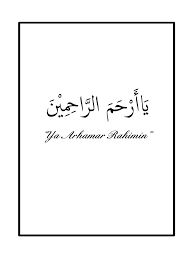 يَاأَرْحَمَ الرَّاحِمِيْنَ
"Ya Arhamar Rahimin"